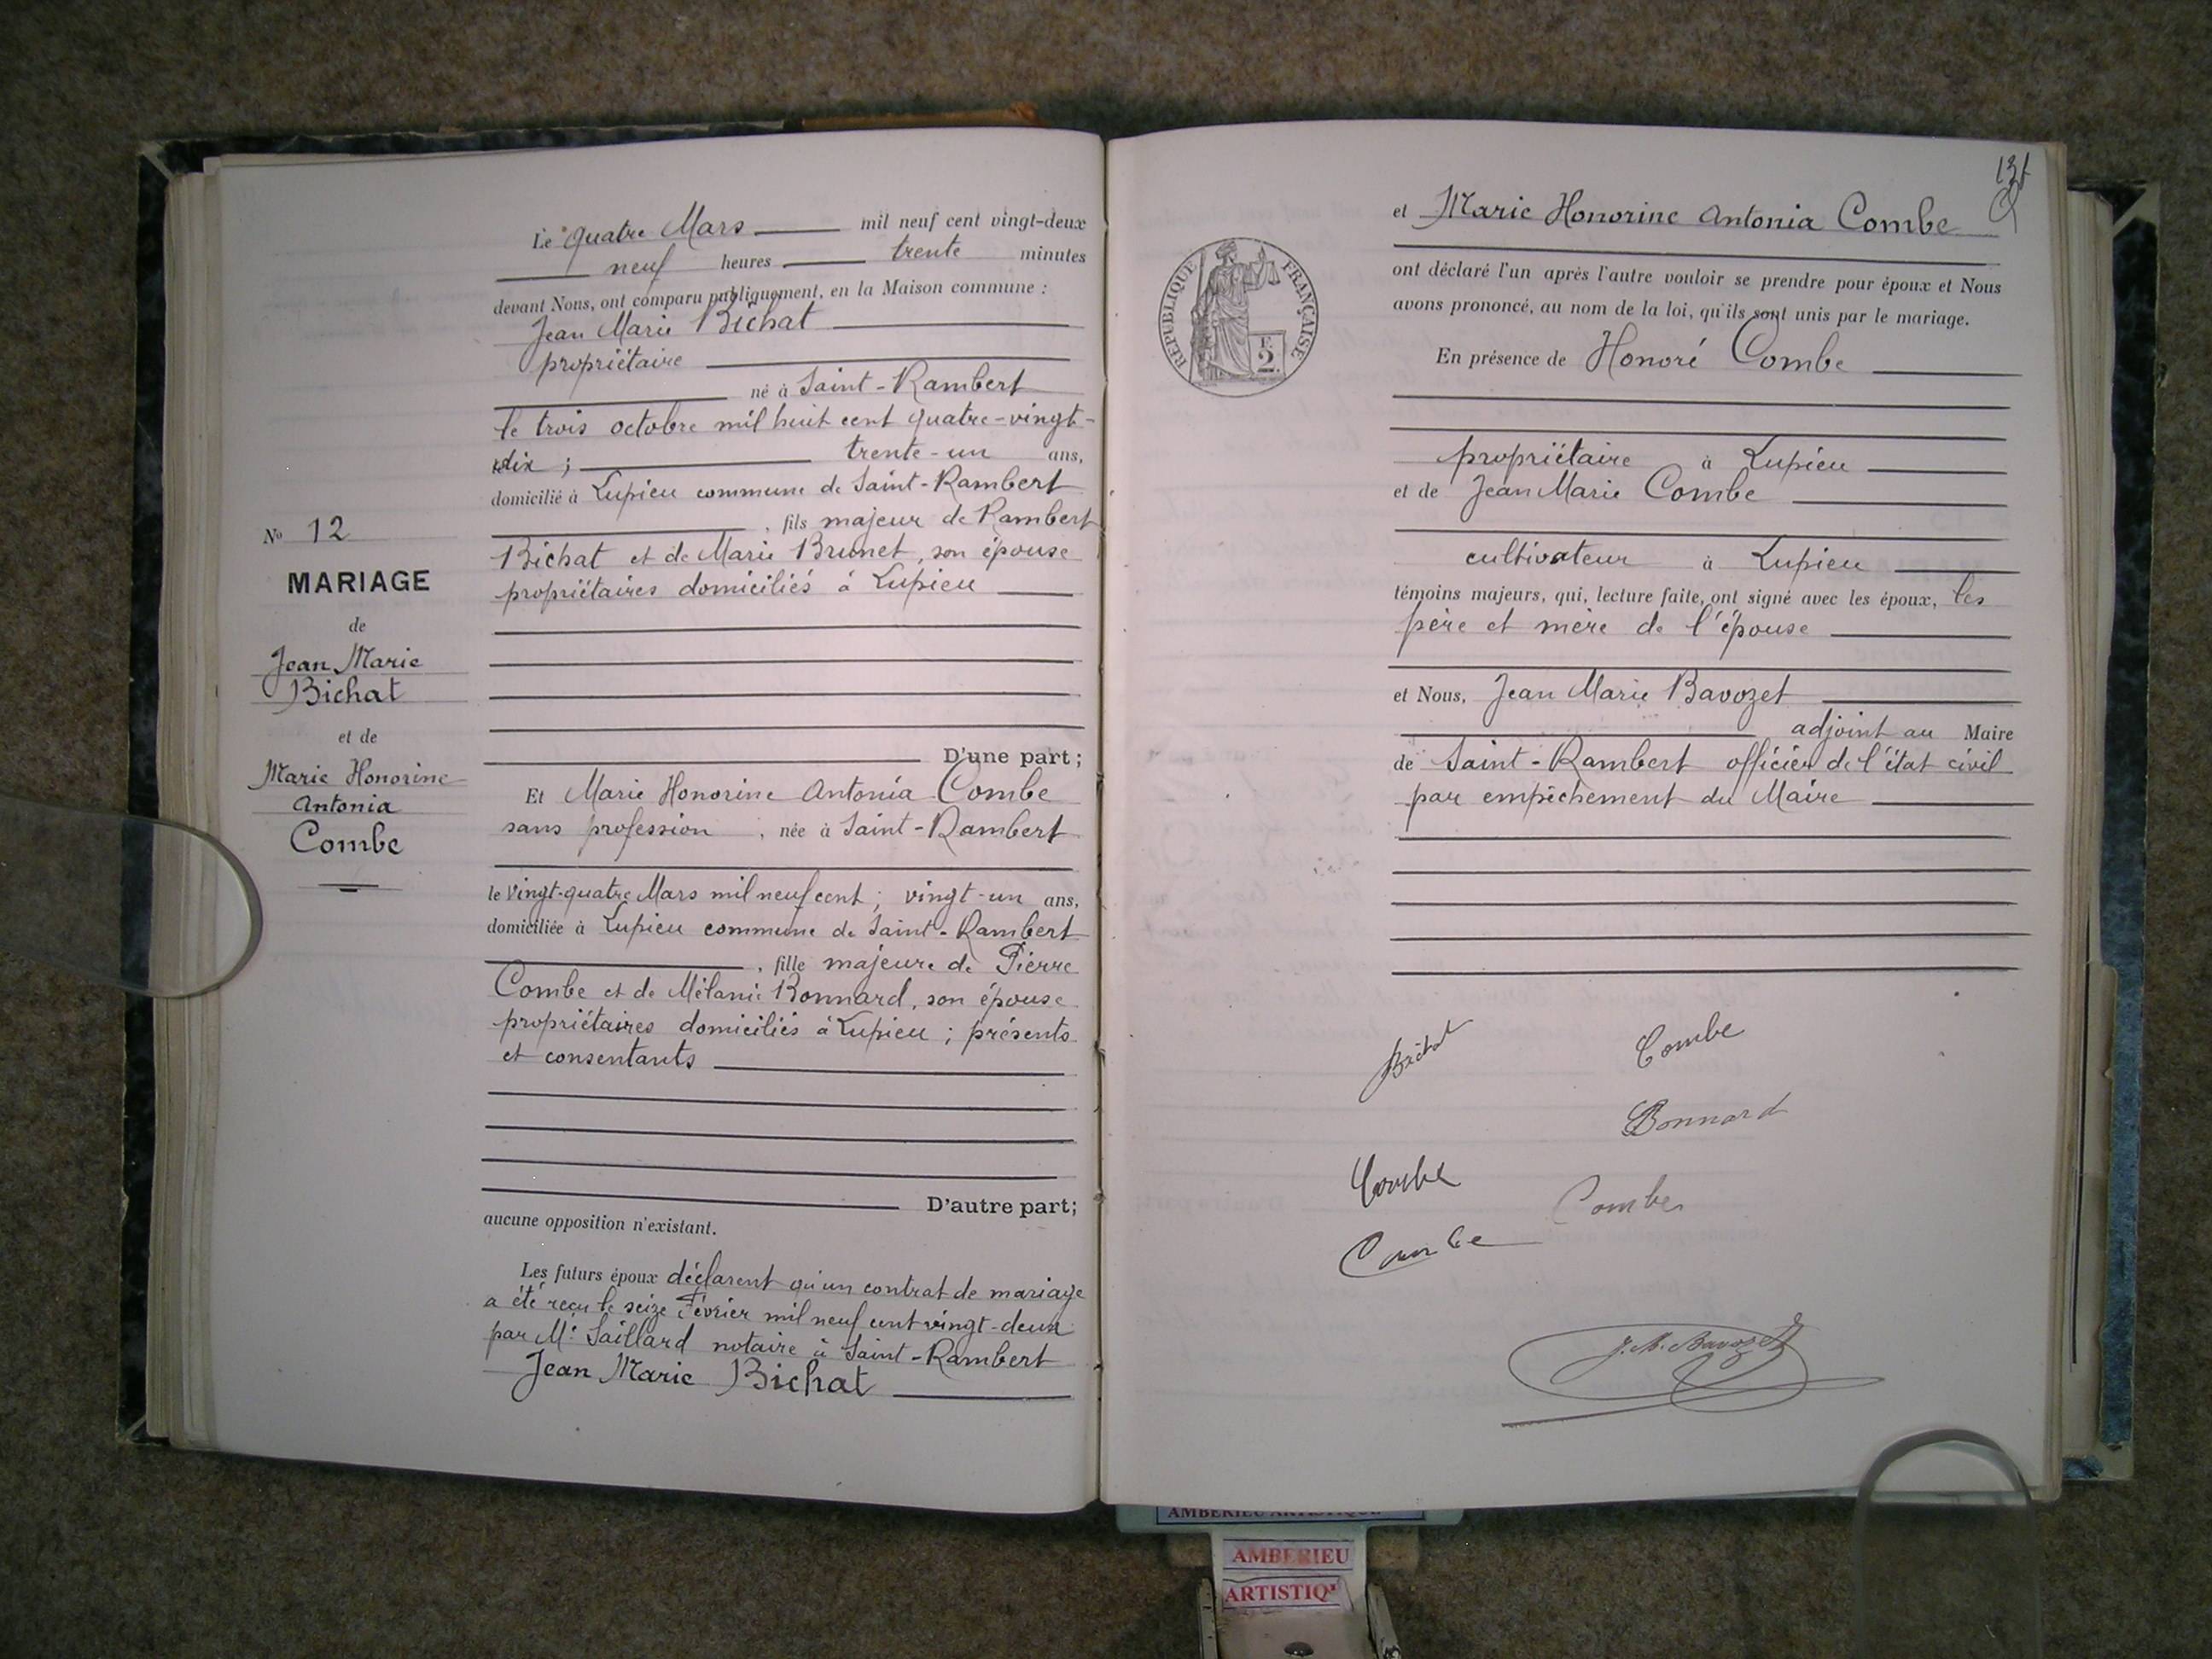 Le quatre Mars mil neuf cent vingt-deux
neuf heures trente minutes
devant Nous, ont comparu publiquement, en la Maison commune :
Jean Marie Bichat
propriétaire
né à Saint-Rambert
le trois octobre mil huit cent quatre-vingt-
dix ; trente-un ans,
domicilié à Lupieu commune de Saint-Rambert
, fils majeur de Rambert
Bichat et de Marie Brunet, son épouse
propriétaires domiciliés à Lupieu
D'une part ;
Et Marie Honorine Antonia Combe
sans profession , née à Saint-Rambert
le vingt-quatre Mars mil neuf cent ; vingt-un ans,
domiciliée à Lupieu commune de Saint-Rambert
, fille majeure de Pierre
Combe et de Mélanie Bonnard, son épouse
propriétaires domiciliés à Lupieu ; présents
et consentants
D'autre part ;
aucune opposition n'existant.
Les futurs époux déclarent qu'un contrat de mariage
a été reçu le seize Février mil neuf cent vingt-deux
par Me Saillard notaire à Saint-Rambert
Jean Marie Bichat
No 12
MARIAGE
de
Jean Marie
Bichat
et de
Marie Honorine
Antonia
Combe
et Marie Honorine Antonia Combe
ont déclaré l'un après l'autre vouloir se prendre pour époux et Nous
avons prononcé, au nom de la loi, qu'ils sont unis par le mariage.
En présence de Honoré Combe
propriétaire à Lupieu
et de Jean Marie Combe
cultivateur à Lupieu
témoins majeurs, qui, lecture faite, ont signé avec les époux, les
père et mère de l'épouse
et Nous, Jean Marie Bavozet
adjoint au Maire
de Saint-Rambert officier de l'état civil
par empêchement du Maire
RÉPUBLIQUE FRANÇAISE
F.
2.
Bichat
Combe
Bonnard
Combe
Combe
Combe
J. M. Bavozet
AMBERIEU ARTISTIQUE
AMBERIEU
ARTISTIQ